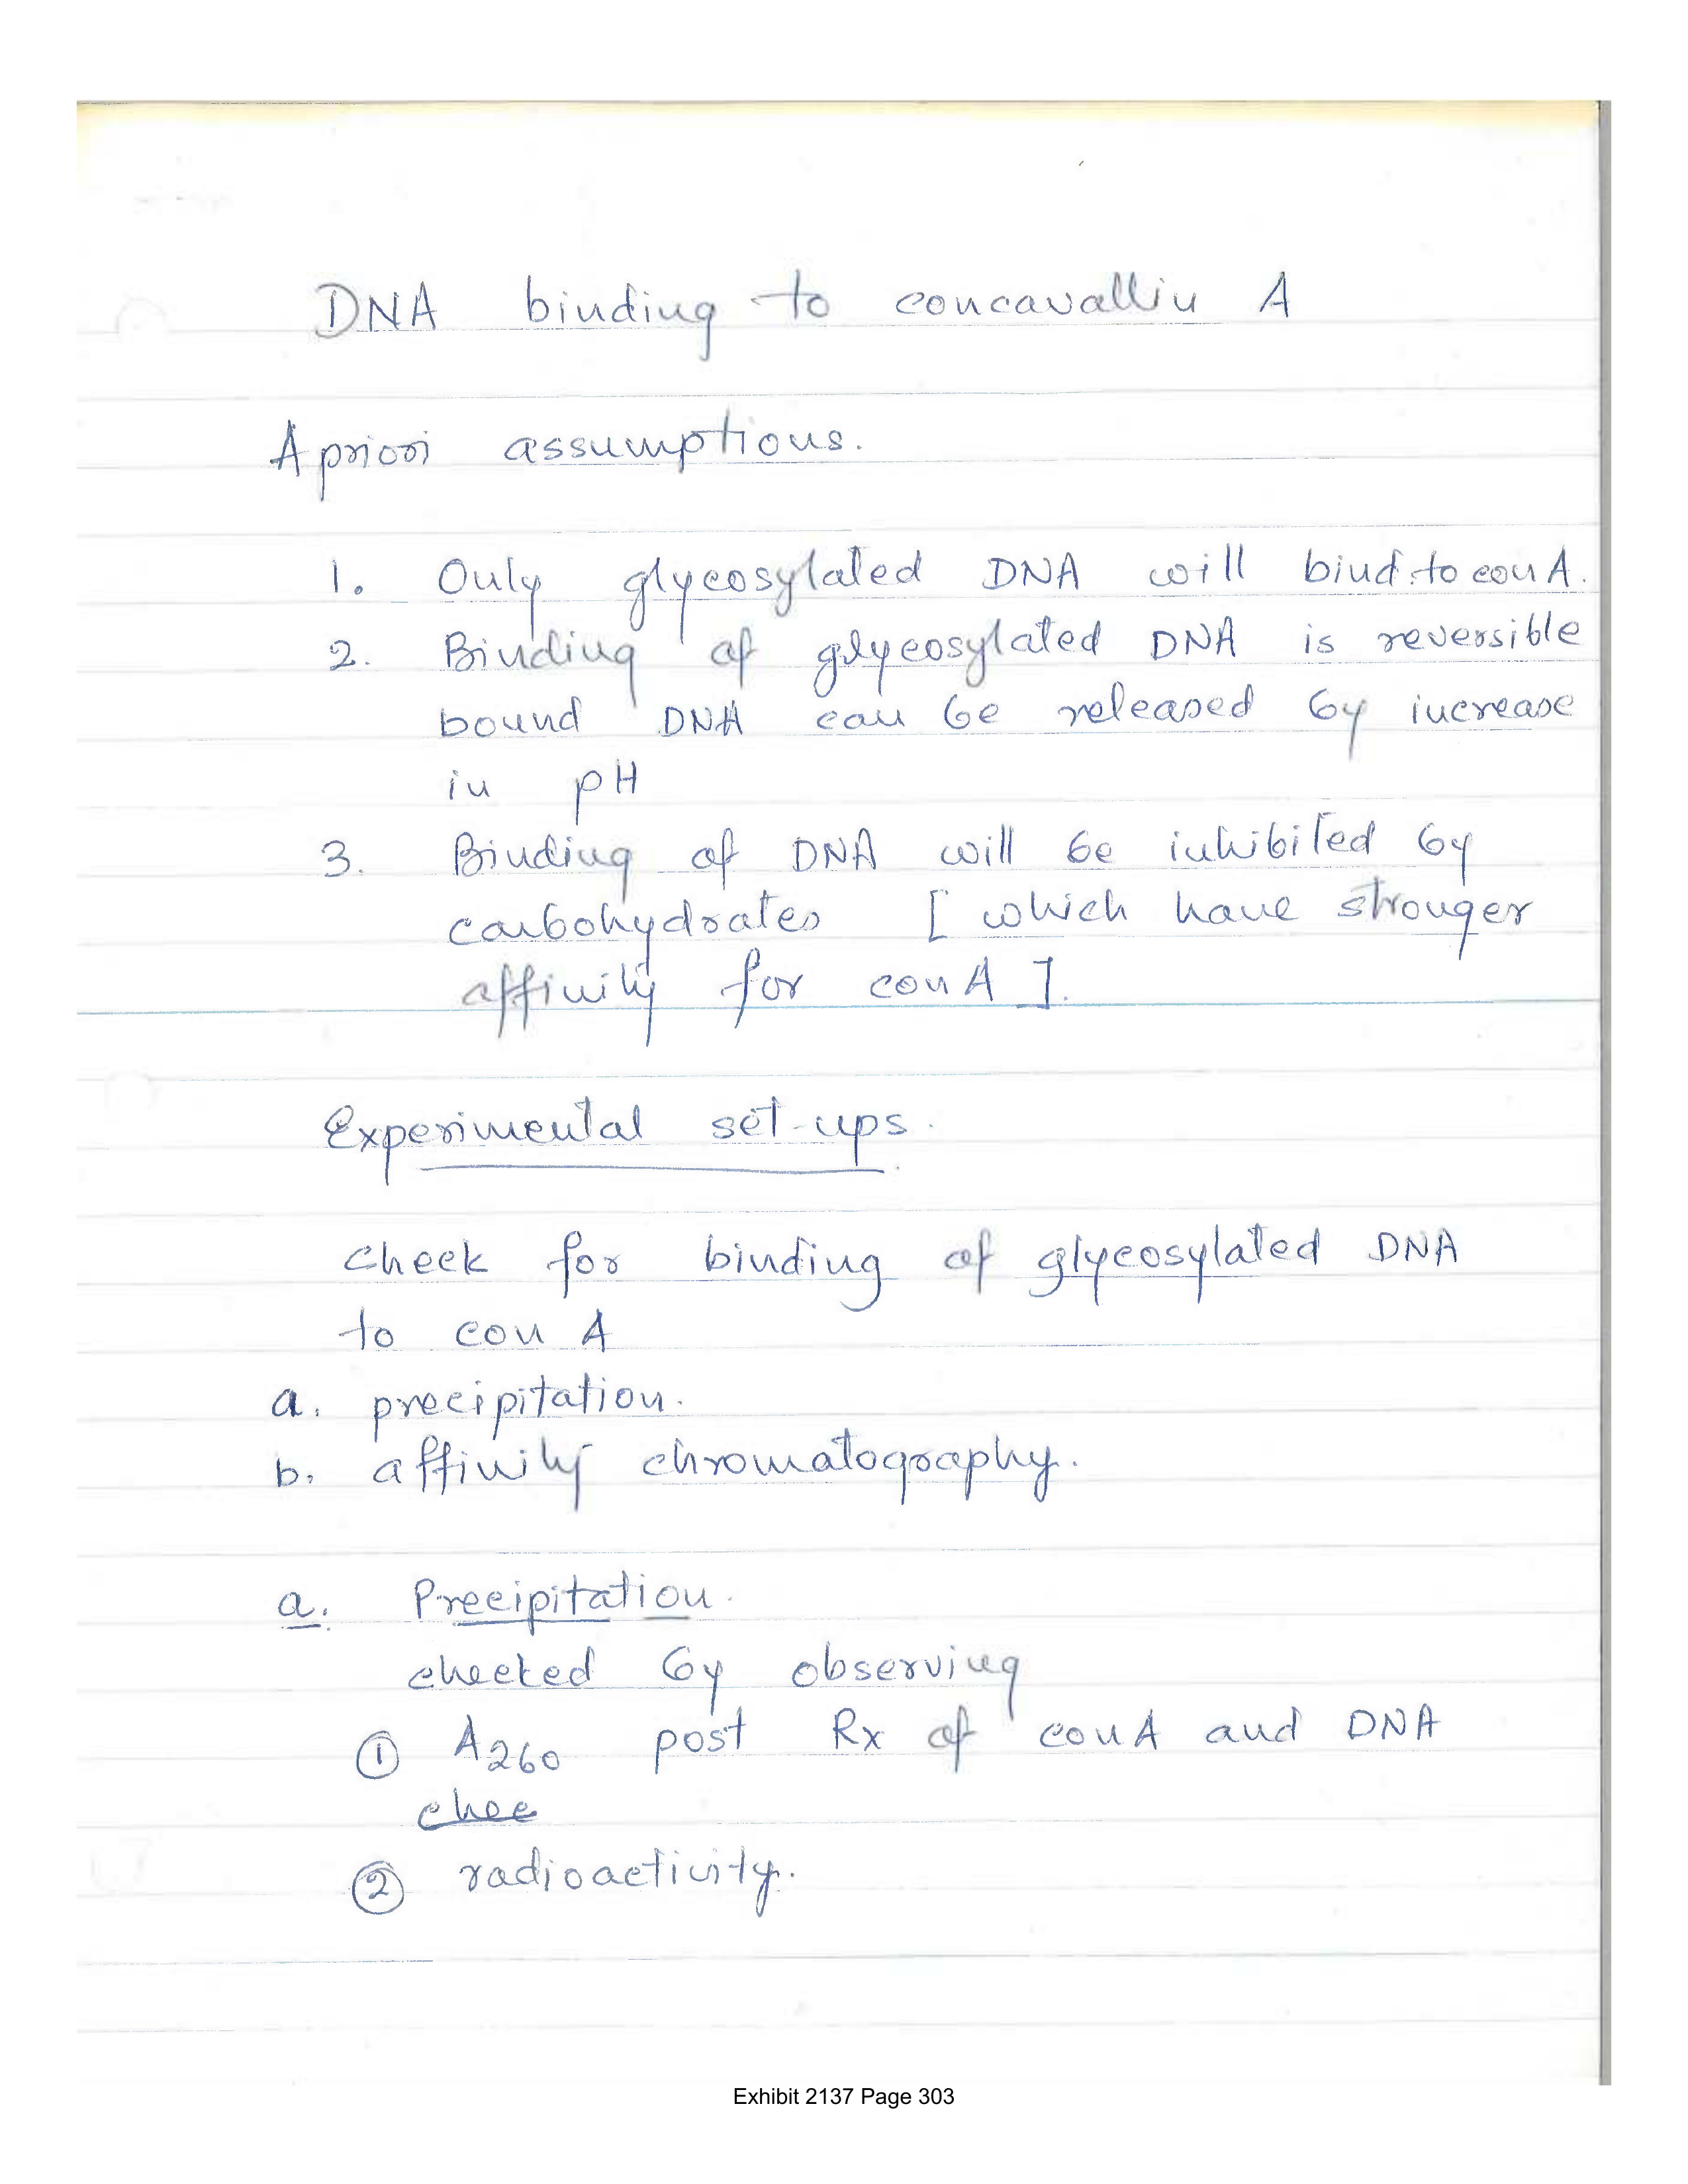 DNA binding to concavallin A
A priori assumptions.
1. Only glycosylated DNA will bind to con A.
2. Binding of glycosylated DNA is reversible
bound DNA can be released by increase
in pH
3. Binding of DNA will be inhibited by
carbohydrates [ which have stronger
affinity for con A ].
Experimental set-ups.
check for binding of glycosylated DNA
to con A
a. precipitation.
b. affinity chromatography.
a. Precipitation.
checked by observing
① A260 post Rx of con A and DNA
chec
② radioactivity.
Exhibit 2137 Page 303